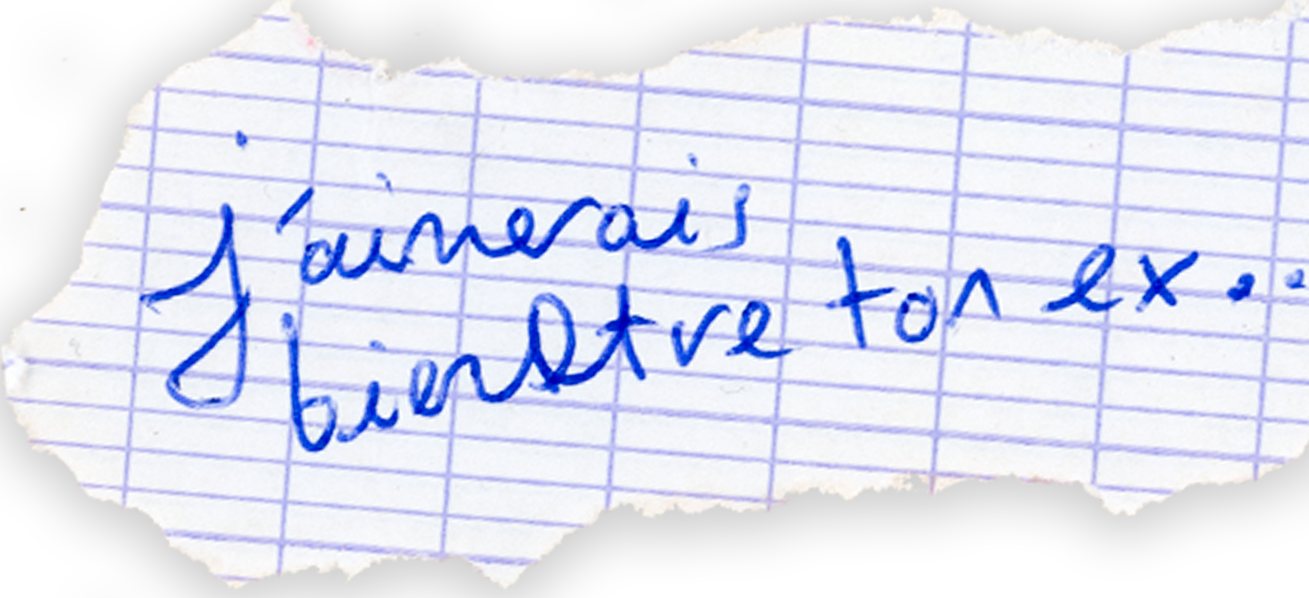 J'aimerais
bien être ton ex...